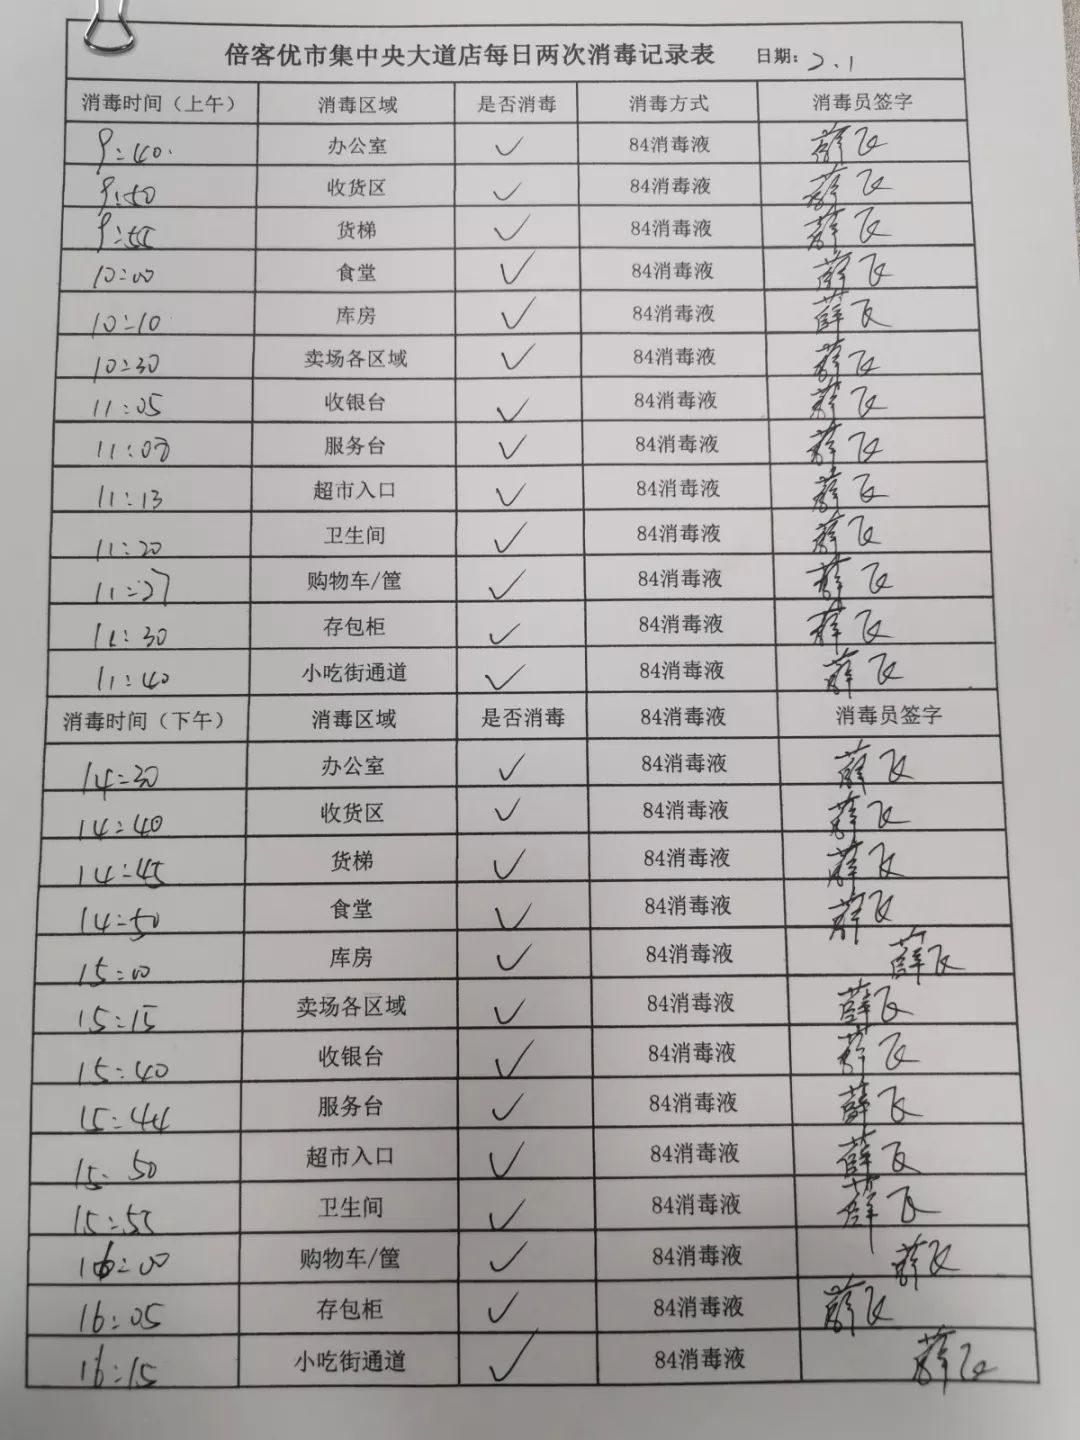 倍客优市集中央大道店每日两次消毒记录表 日期: 2.1
消毒时间（上午） 消毒区域 是否消毒 消毒方式 消毒员签字
9:40 办公室 ✓ 84消毒液 薛飞
9:50 收货区 ✓ 84消毒液 薛飞
9:55 货梯 ✓ 84消毒液 薛飞
10:00 食堂 ✓ 84消毒液 薛飞
10:10 库房 ✓ 84消毒液 薛飞
10:30 卖场各区域 ✓ 84消毒液 薛飞
11:05 收银台 ✓ 84消毒液 薛飞
服务台 ✓ 84消毒液 薛飞
11:13 超市入口 ✓ 84消毒液 薛飞
11:20 卫生间 ✓ 84消毒液 薛飞
11:27 购物车/筐 ✓ 84消毒液 薛飞
11:30 存包柜 ✓ 84消毒液 薛飞
11:40 小吃街通道 ✓ 84消毒液 薛飞
消毒时间（下午） 消毒区域 是否消毒 84消毒液 消毒员签字
14:30 办公室 ✓ 84消毒液 薛飞
14:40 收货区 ✓ 84消毒液 薛飞
14:45 货梯 ✓ 84消毒液 薛飞
14:50 食堂 ✓ 84消毒液 薛飞
15:00 库房 ✓ 84消毒液 薛飞
15:15 卖场各区域 ✓ 84消毒液 薛飞
15:40 收银台 ✓ 84消毒液 薛飞
15:44 服务台 ✓ 84消毒液 薛飞
15:50 超市入口 ✓ 84消毒液 薛飞
15:55 卫生间 ✓ 84消毒液 薛飞
16:00 购物车/筐 ✓ 84消毒液 薛飞
16:05 存包柜 ✓ 84消毒液 薛飞
16:15 小吃街通道 ✓ 84消毒液 薛飞